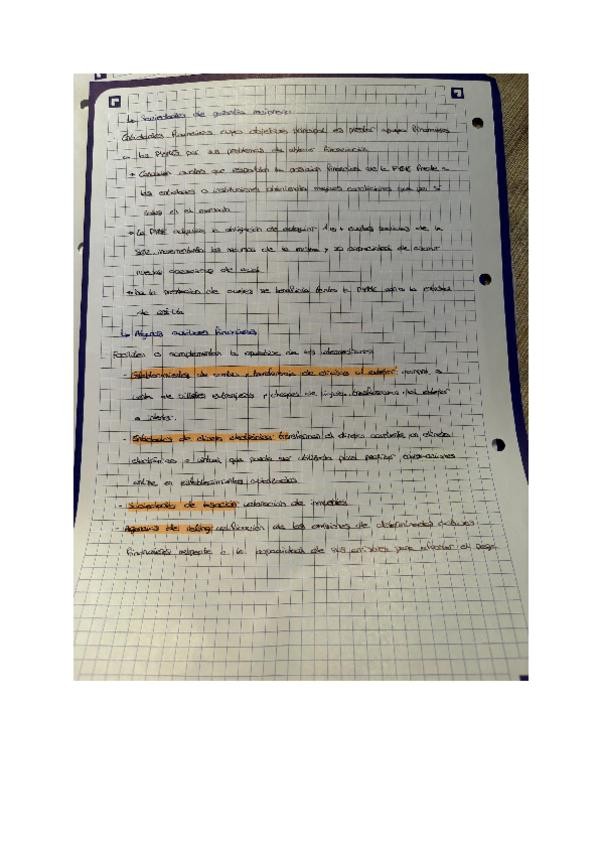 ↳ Sociedades de garantía recíproca:
Entidades financieras cuyo objetivo principal es prestar apoyo financiero
a las PYMES por sus problemas de obtener financiación
→ Conceden avales que respaldan la posición financiera de la PYME frente a
las entidades o instituciones obteniendo mejores condiciones que por sí
solas en el mercado
→ La PYME adquiere la obligación de suscribir cuotas sociales de la
SGR incrementando los recursos de la misma y su capacidad de asumir
nuevas operaciones de aval.
→ De la prestación de avales se beneficia tanto la PYME como la entidad
de crédito
↳ Agentes auxiliares financieros
Facilitan o complementan la operativa de los intermediarios
- Establecimientos de cambio y transferencia de divisas al exterior: compra o
venta de billetes extranjeros y cheques de viajero, transferencias del exterior
o interior.
- Entidades de dinero electrónico: transforman el dinero corriente por dinero
electrónico o virtual que puede ser utilizado para realizar operaciones
online en establecimientos
- Sociedades de tasación: valoración de inmuebles
- Agencias de rating: calificación de las emisiones de determinados activos
financieros respecto a la capacidad de sus emisores para afrontar el pago.